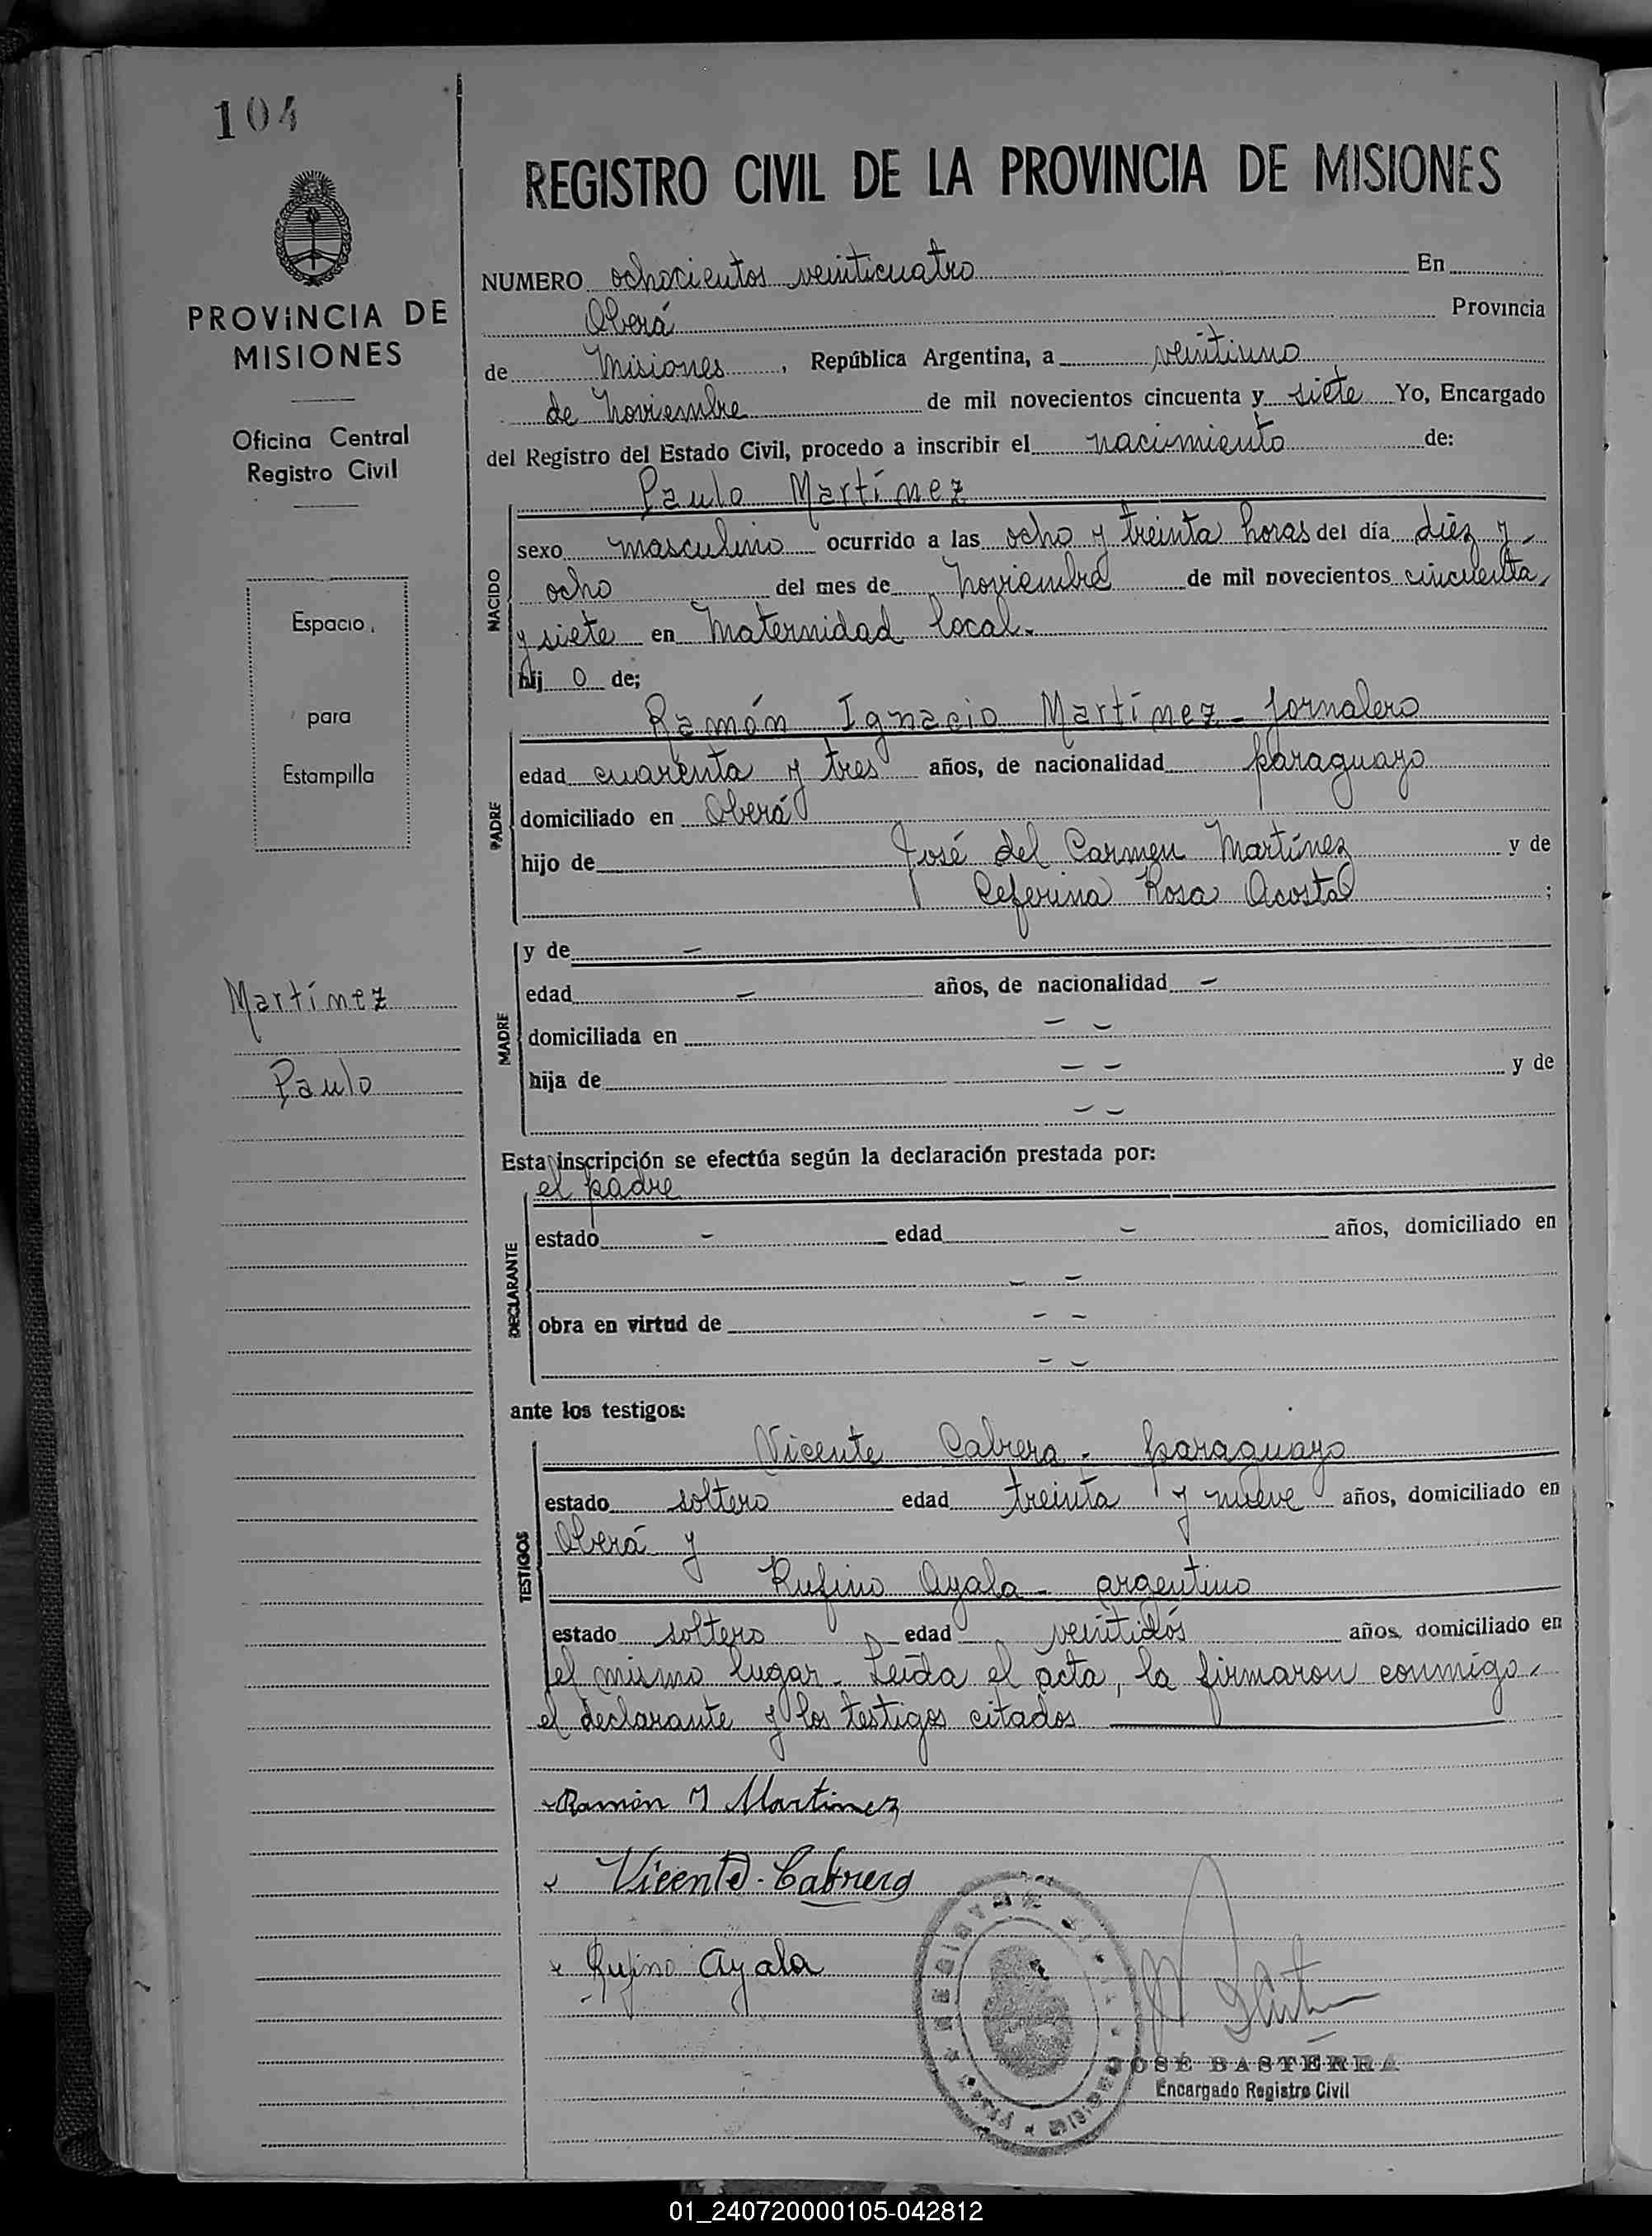 104
PROVINCIA DE
MISIONES
Oficina Central
Registro Civil
Espacio
para
Estampilla
Martínez
Paulo
REGISTRO CIVIL DE LA PROVINCIA DE MISIONES
NUMERO ochocientos veinticuatro En
Oberá Provincia
de Misiones, República Argentina, a veintiuno
de Noviembre de mil novecientos cincuenta y siete Yo, Encargado
del Registro del Estado Civil, procedo a inscribir el nacimiento de:
Paulo Martínez
NACIDO
sexo masculino ocurrido a las ocho y treinta horas del día diez y
ocho del mes de Noviembre de mil novecientos cincuenta
y siete en Maternidad local.
hij o de;
Ramón Ignacio Martínez - Jornalero
PADRE
edad cuarenta y tres años, de nacionalidad paraguayo
domiciliado en Oberá
hijo de José del Carmen Martínez y de
Ceferina Rosa Acosta ;
MADRE
y de -
edad - años, de nacionalidad -
domiciliada en - -
hija de - - y de
- -
Esta inscripción se efectúa según la declaración prestada por:
el padre
DECLARANTE
estado - edad - años, domiciliado en
- -
obra en virtud de - -
- -
ante los testigos:
Vicente Cabrera - paraguayo
TESTIGOS
estado soltero edad treinta y nueve años, domiciliado en
Oberá y
Rufino Ayala - argentino
estado soltero edad veintidós años, domiciliado en
el mismo lugar. Leída el acta, la firmaron conmigo
el declarante y los testigos citados
Ramón I Martinez
Vicente Cabrera
Rufino Ayala
JOSÉ BASTERRA
Encargado Registro Civil
01_240720000105-042812